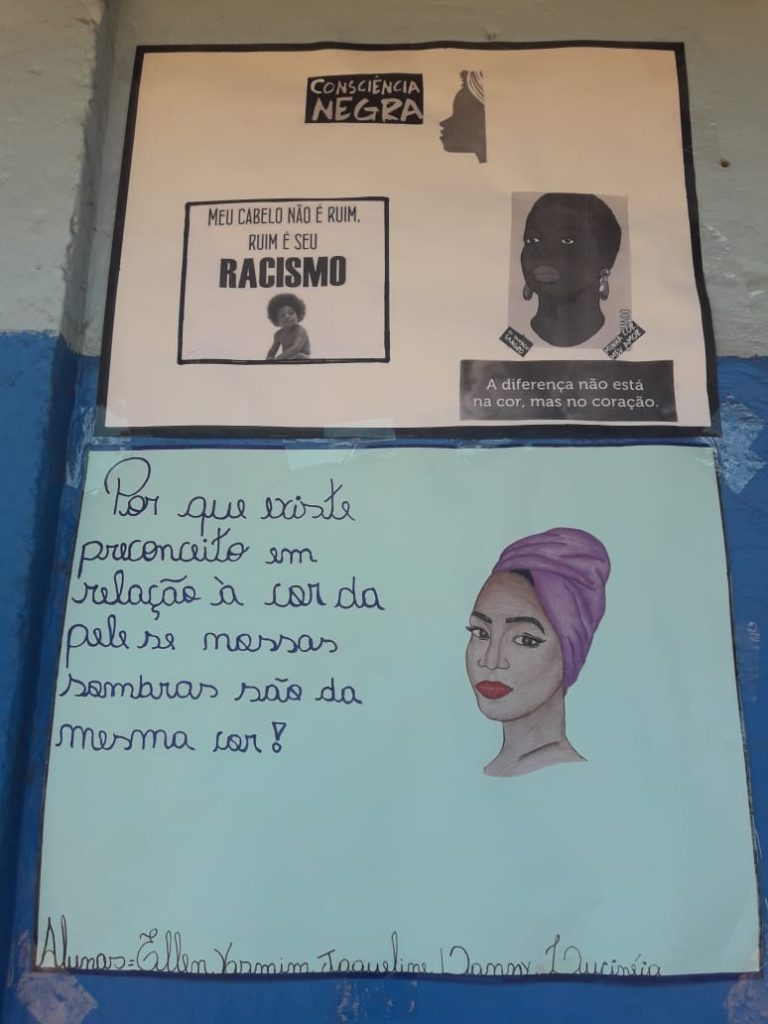 CONSCIÊNCIA
NEGRA
MEU CABELO NÃO É RUIM.
RUIM É SEU
RACISMO
MINHA COR
A diferença não está
na cor, mas no coração.
Por que existe
preconceito em
relação à cor da
pele se nossas
sombras são da
mesma cor!
Alunas: Ellen Yasmim Jaqueline Danny